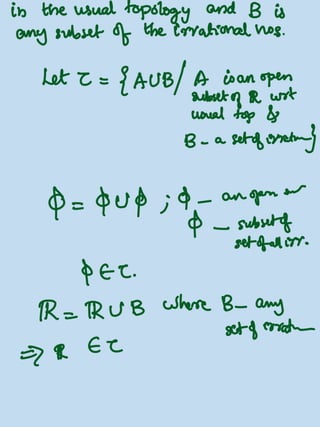 in the usual topology and B is
any subset of the irrational nos.
Let τ = {A∪B/ A is an open
subset of R wrt
usual top &
B - a set of irratn}
ϕ = ϕ∪ϕ ; ϕ - an open
ϕ - subset of
set of all irr.
ϕ ∈ τ.
ℝ = ℝ ∪ B where B - any
set of irratn
⇒ ℝ ∈ τ